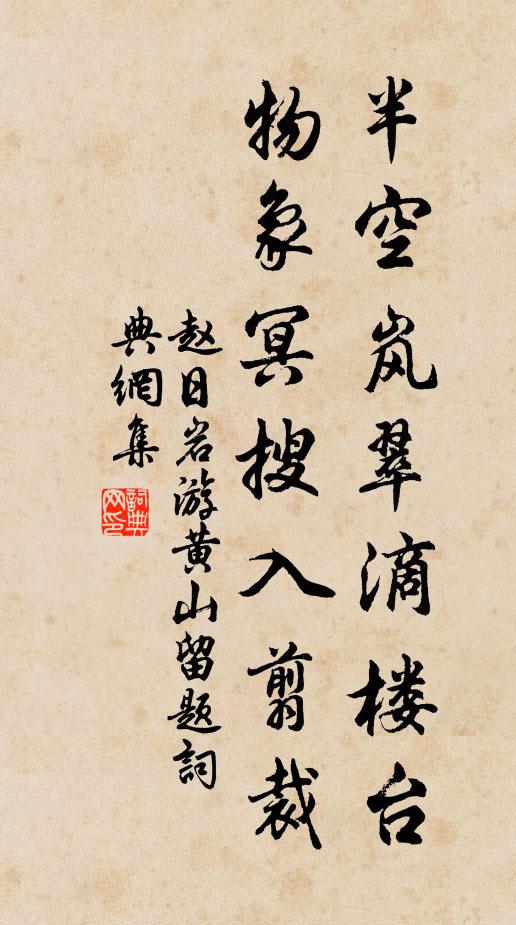 半空岚翠滴楼台
物象冥搜入翦裁
赵日岩游黄山留题詞
典網集
詞典
网印